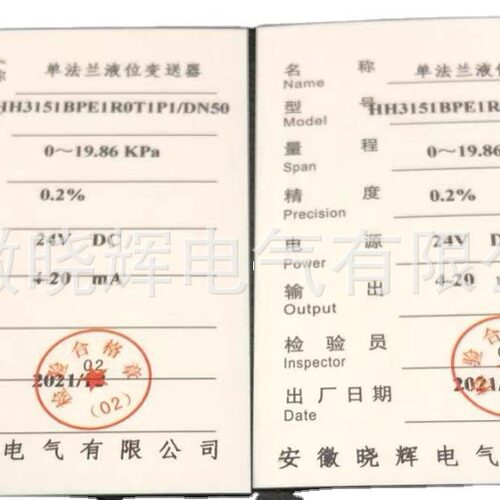 单法兰液位变送器
HH3151BPE1R0T1P1/DN50
0～19.86 KPa
0.2%
24V DC
4-20 mA
检验合格章
02
2021/12
(02)
电气有限公司
名称 单法兰液位
Name
型号 HH3151BPE1R
Model
量程 0～19.86
Span
精度 0.2%
Precision
电源 24V D
Power
输出 4-20 m
Output
检验员
Inspector
出厂日期 2021/
Date
安徽晓辉电气
徽晓辉电气有限公